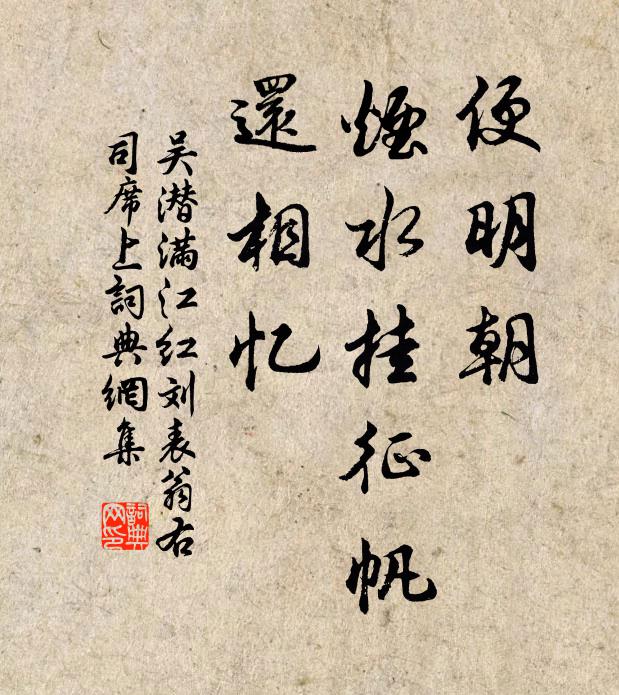 便明朝
烟水挂征帆
還相忆
吴潜满江红刘表翁右
司席上詞典網集
詞典
网印